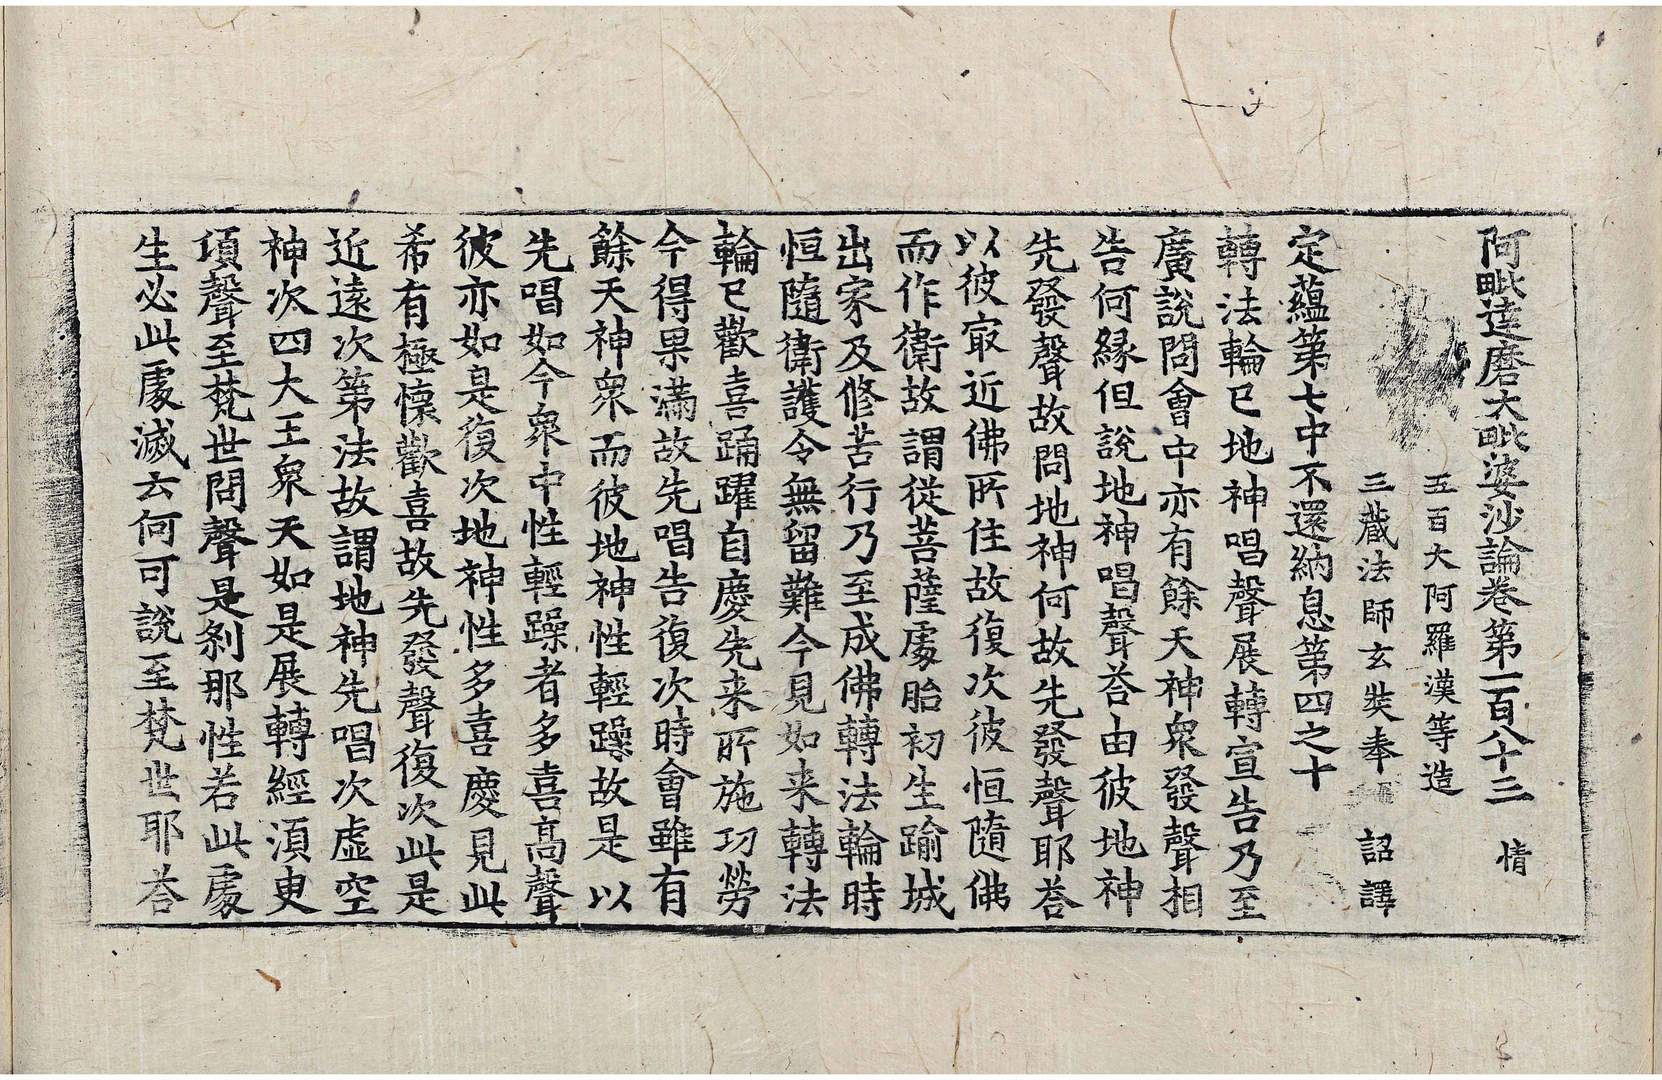 阿毗達磨大毗婆沙論卷第一百八十三 情
五百大阿羅漢等造
三藏法師玄奘奉 詔譯
定蘊第七中不還納息第四之十
轉法輪已地神唱聲展轉宣告乃至
廣說問會中亦有餘天神衆發聲相
告何緣但說地神唱聲荅由彼地神
先發聲故問地神何故先發聲耶荅
以彼冣近佛所住故復次彼恒隨佛
而作衛故謂從菩薩處胎初生踰城
出家及修苦行乃至成佛轉法輪時
恒隨衛護令無留難今見如来轉法
輪已歡喜踊躍自慶先来所施功勞
今得果滿故先唱告復次時會雖有
餘天神衆而彼地神性輕躁故是以
先唱如今衆中性輕躁者多喜高聲
彼亦如是復次地神性多喜慶見此
希有極懷歡喜故先發聲復次此是
近遠次第法故謂地神先唱次虛空
神次四大王衆天如是展轉經湏臾
項聲至梵世問聲是剎那性若此處
生必此處滅云何可說至梵世耶荅